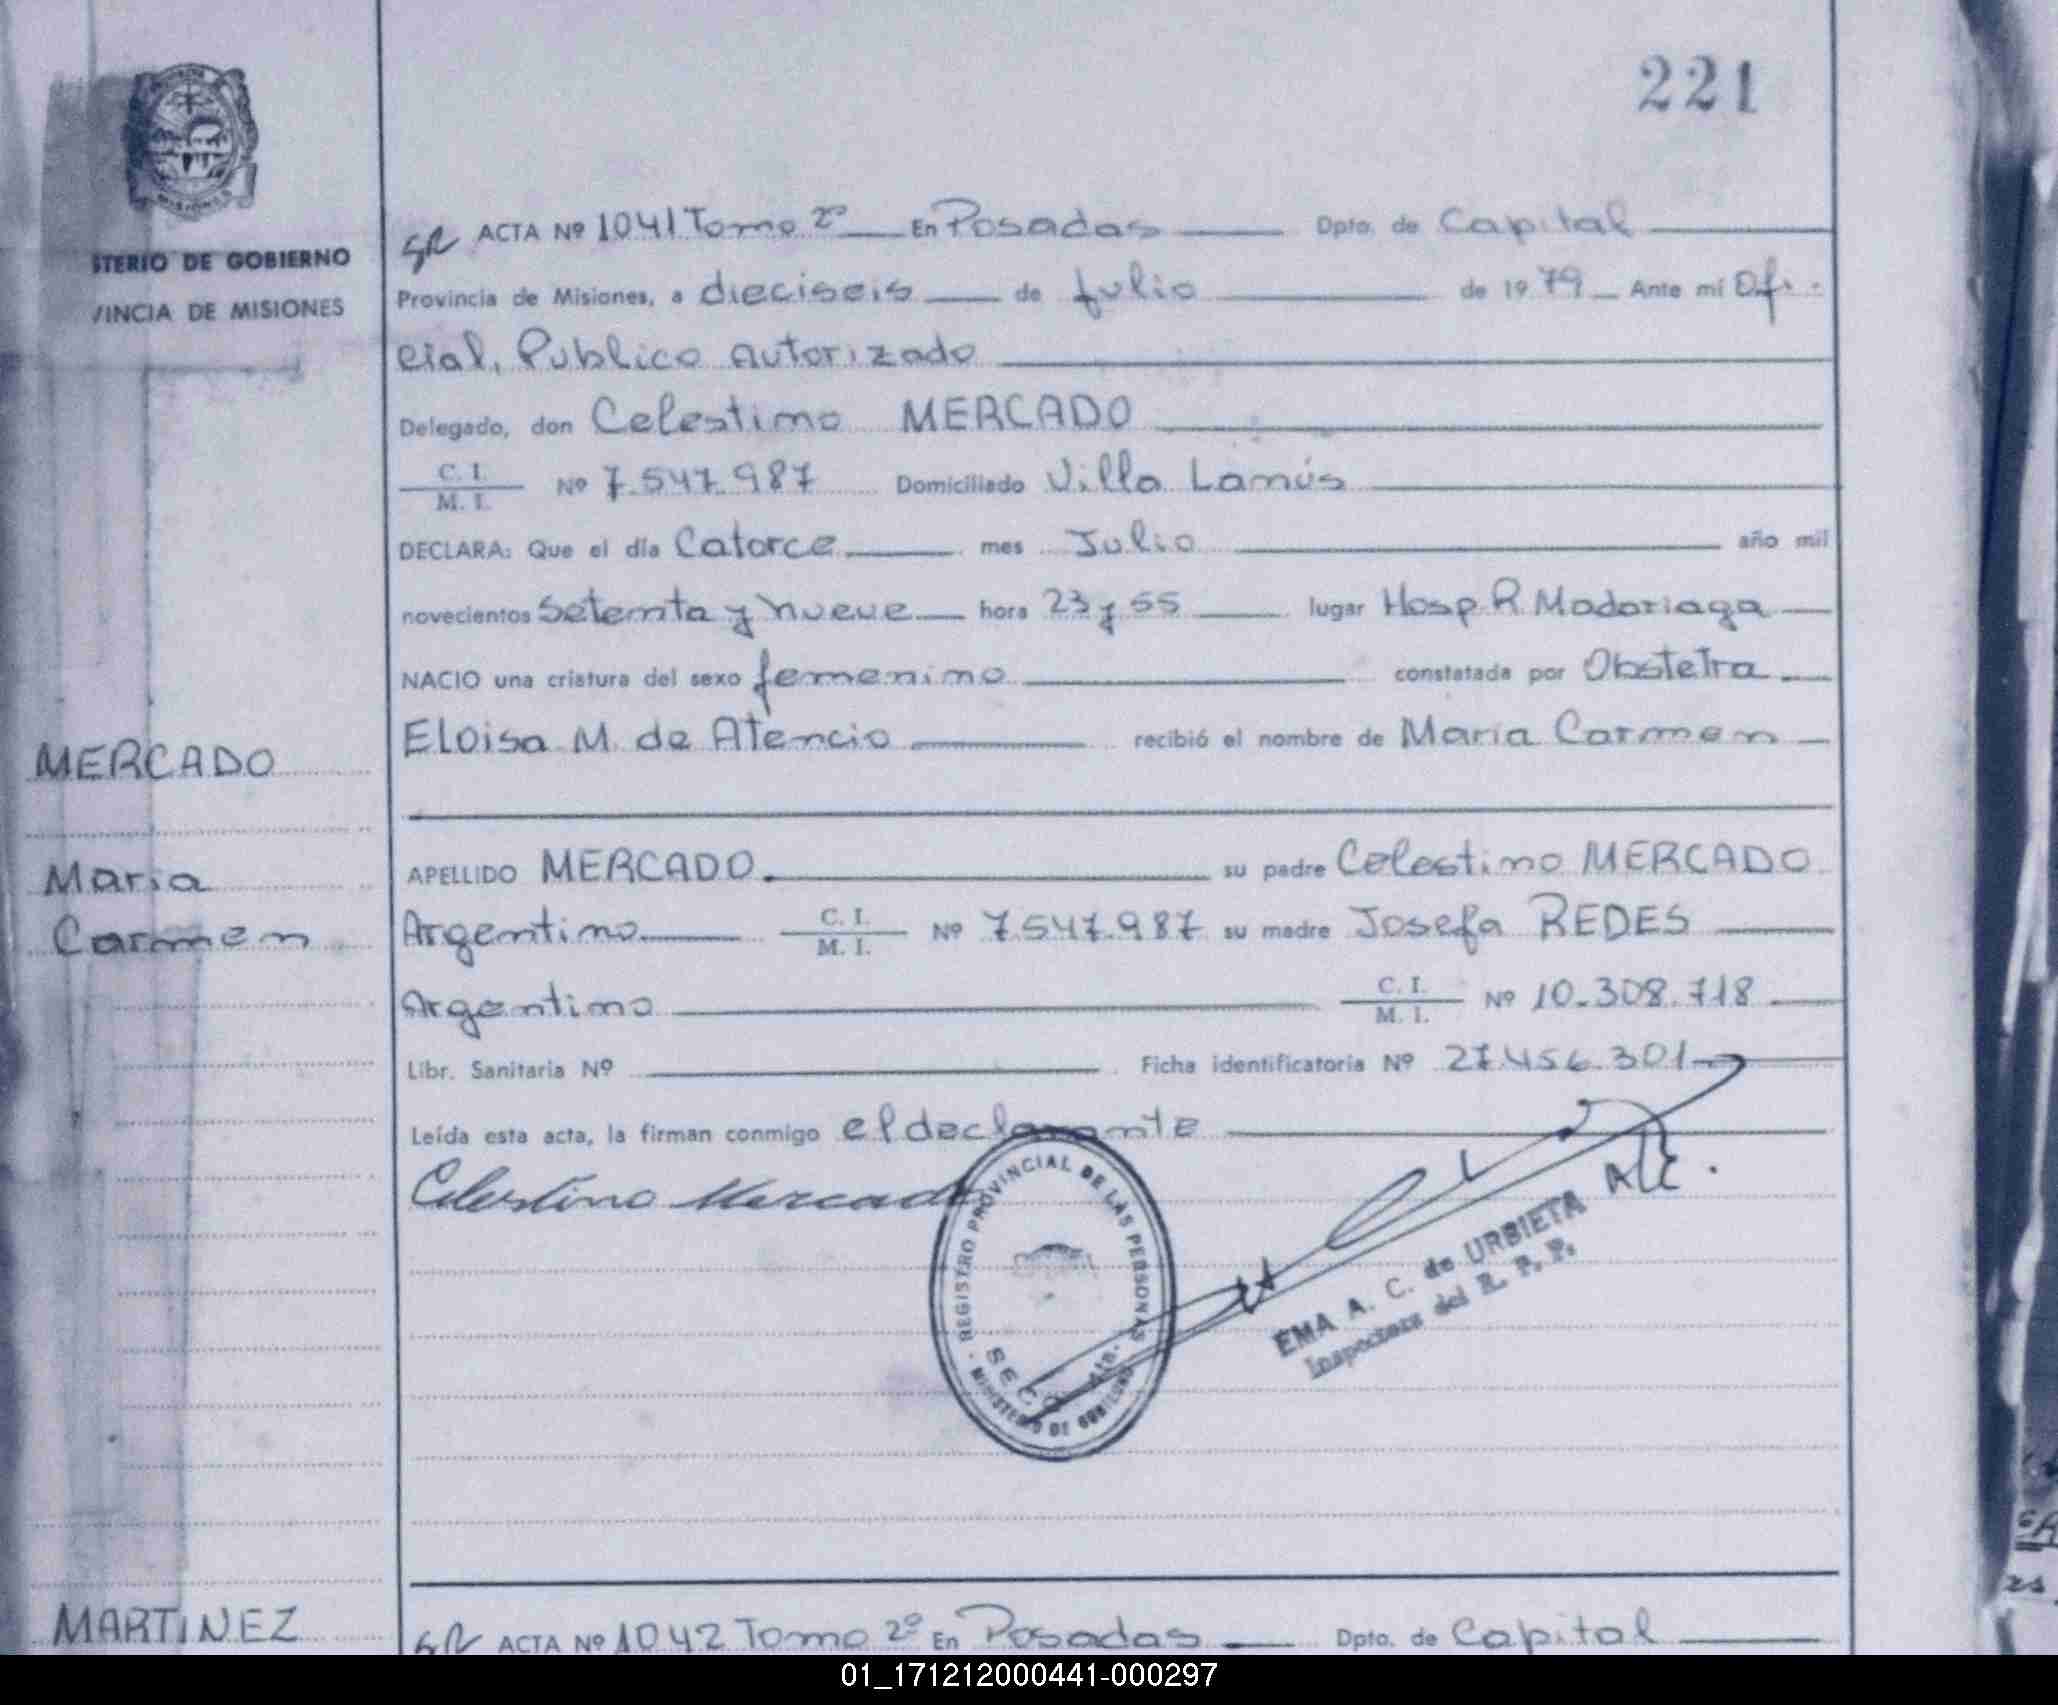 221
STERIO DE GOBIERNO
VINCIA DE MISIONES
ACTA Nº 1041 Tomo 2º En Posadas Dpto. de Capital
Provincia de Misiones, a dieciseis de Julio de 1979 Ante mí Ofi-
cial, Publico Autorizado
Delegado, don Celestino MERCADO
C. I.
M. I. Nº 7.547.987 Domiciliado Villa Lanús
DECLARA: Que el día Catorce mes Julio año mil
novecientos Setenta y nueve hora 23 y 55 lugar Hosp. R. Madariaga
NACIO una criatura del sexo femenino constatada por Obstetra
Eloisa M. de Atencio recibió el nombre de Maria Carmen
MERCADO
Maria
Carmen
APELLIDO MERCADO su padre Celestino MERCADO
Argentino C. I. M. I. Nº 7.547.987 su madre Josefa REDES
Argentino C. I. M. I. Nº 10.308.718
Libr. Sanitaria Nº Ficha identificatoria Nº 27.456.301
Leída esta acta, la firman conmigo el declarante
Celestino Mercado
REGISTRO PROVINCIAL DE LAS PERSONAS
MINISTERIO DE GOBIERNO
EMA A. C. de URBIETA
Inspectora del R. P. P.
MARTINEZ
ACTA Nº 1042 Tomo 2º En Posadas Dpto. de Capital
01_171212000441-000297